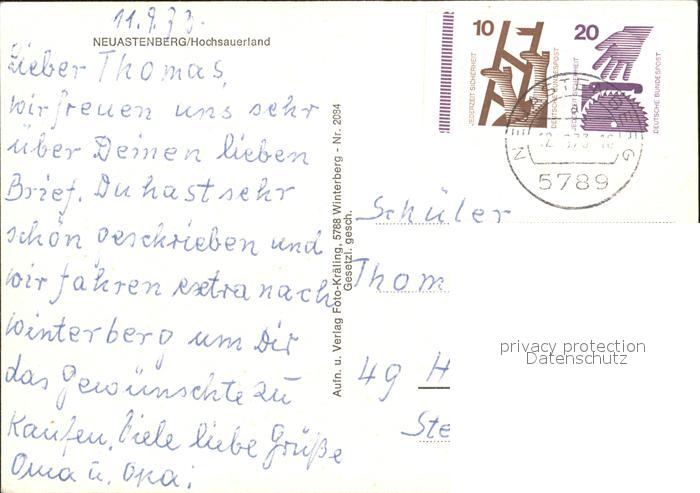 11.9.73.
NEUASTENBERG/Hochsauerland
Lieber Thomas,
wir freuen uns sehr
über Deinen lieben
Brief. Du hast sehr
schön geschrieben und
wir fahren extra nach
Winterberg um Dir
das gewünschte zu
kaufen. Viele liebe Grüße
Oma u. Opa.
Aufn. u. Verlag Foto-Kräling, 5788 Winterberg - Nr. 2094
Gesetzl. gesch.
10
JEDERZEIT SICHERHEIT
DEUTSCHE BUNDESPOST
20
JEDERZEIT SICHERHEIT
DEUTSCHE BUNDESPOST
5789
Schüler
Thom
49 H
Ste
privacy protection
Datenschutz